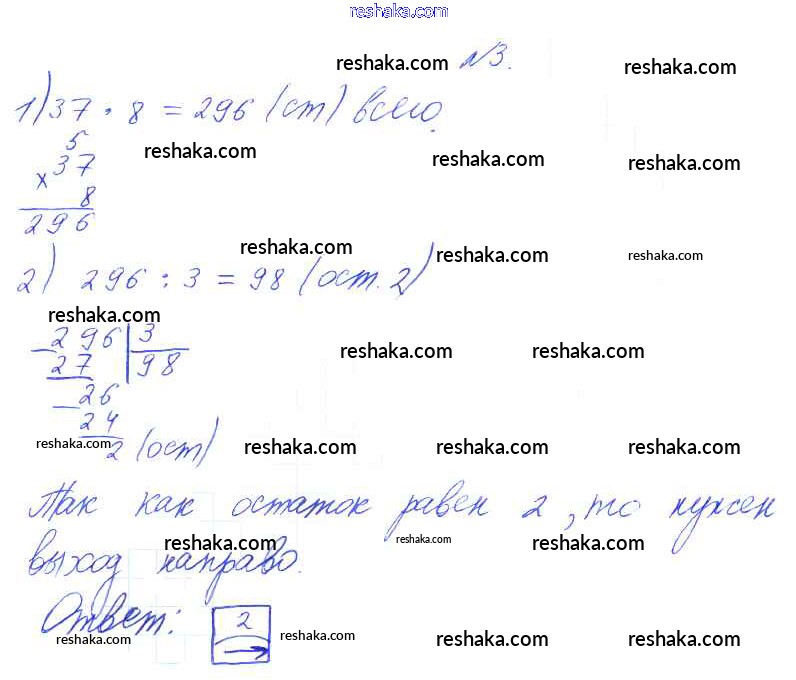 reshaka.com
reshaka.com №3. reshaka.com
1) 37 · 8 = 296 (ст) всего.
5 reshaka.com reshaka.com reshaka.com
× 37
8
296
reshaka.com reshaka.com reshaka.com
2) 296 : 3 = 98 (ост. 2)
reshaka.com
296 | 3 reshaka.com reshaka.com
27 98
26
24
reshaka.com 2 (ост) reshaka.com reshaka.com reshaka.com
Так как остаток равен 2, то нужен
reshaka.com reshaka.com reshaka.com
выход направо.
Ответ: 2
reshaka.com reshaka.com reshaka.com reshaka.com